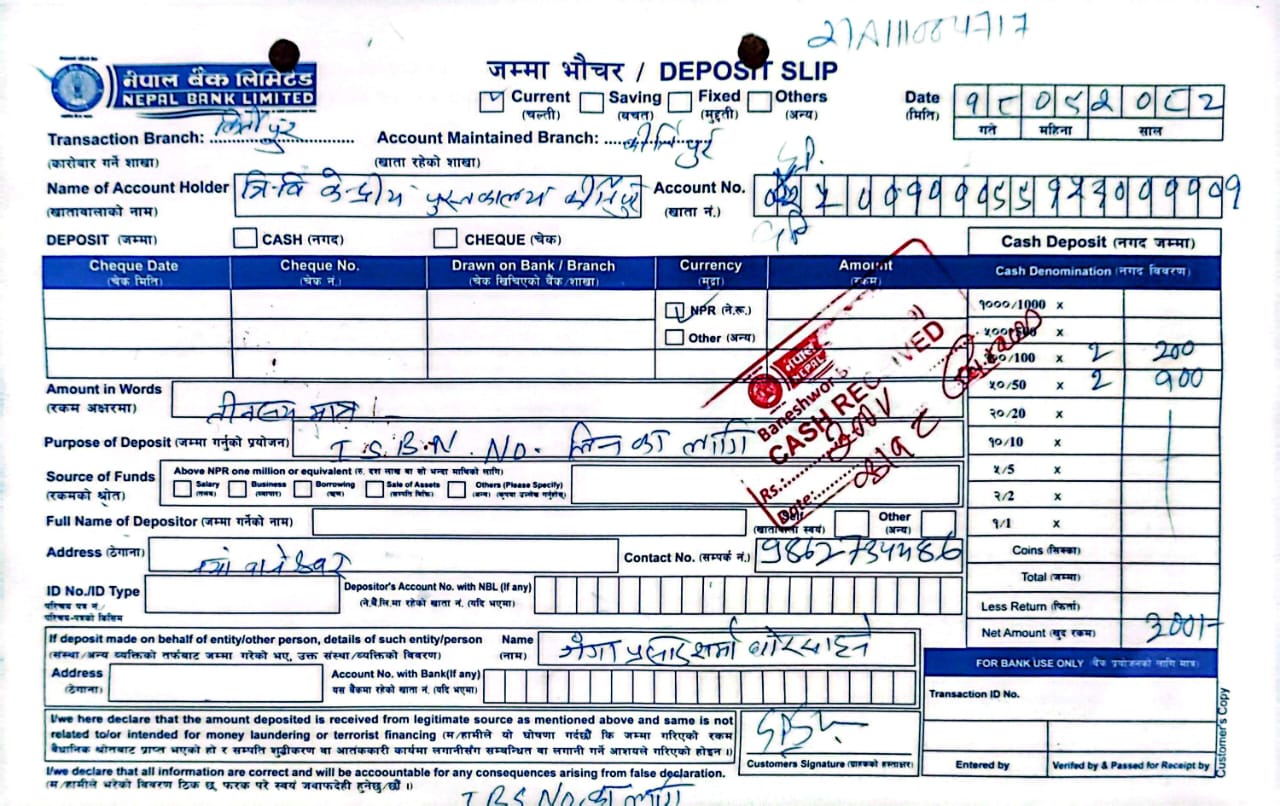 27A111004717
नेपाल बैंक लिमिटेड
NEPAL BANK LIMITED
जम्मा भौचर / DEPOSIT SLIP
Current (चल्ती) Saving (बचत) Fixed (मुद्दती) Others (अन्य)
Date (मिति) १८ ०९ २०८२
गते महिना साल
Transaction Branch: कीर्तिपुर
(कारोबार गर्ने शाखा)
Account Maintained Branch: कीर्तिपुर
(खाता रहेको शाखा)
Name of Account Holder त्रि.वि केन्द्रीय पुस्तकालय कीर्तिपुर
(खातावालाको नाम)
Account No.
(खाता नं.)
DEPOSIT (जम्मा) CASH (नगद) CHEQUE (चेक)
Cash Deposit (नगद जम्मा)
Cheque Date (चेक मिति) Cheque No. (चेक नं.) Drawn on Bank / Branch (चेक खिचिएको बैंक/शाखा) Currency (मुद्रा) Amount (रकम)
Cash Denomination (नगद विवरण)
NPR (ने.रू.)
Other (अन्य)
१०००/1000 x
५००/500 x
१००/100 x 2 200
५०/50 x 2 100
२०/20 x
१०/10 x
५/5 x
२/2 x
१/1 x
Coins (सिक्का)
Total (जम्मा)
Less Return (फिर्ता)
Net Amount (खुद रकम) 300/-
नेपाल
NEPAL
Baneshwor
CASH RECEIVED
Rs.: 300/
Date:
Amount in Words तीनसय मात्र ।
(रकम अक्षरमा)
Purpose of Deposit (जम्मा गर्नुको प्रयोजन) I.S.B.N. NO. लिनका लागि
Source of Funds
(रकमको श्रोत)
Above NPR one million or equivalent (रु. दश लाख वा सो भन्दा माथिको लागि)
Salary (तलब) Business (व्यापार) Borrowing (ऋण) Sale of Assets (सम्पत्ति बिक्रि) Others (Please Specify) (अन्य) (कृपया उल्लेख गर्नुहोस्)
Full Name of Depositor (जम्मा गर्नेको नाम)
Self (खातावाला स्वयं) Other (अन्य)
Address (ठेगाना) नयाँ वानेश्वर
Contact No. (सम्पर्क नं.)
ID No./ID Type
परिचय पत्र नं./
परिचय-पत्रको किसिम
Depositor's Account No. with NBL (If any)
(ने.बैं.लि.मा रहेको खाता नं. (यदि भएमा)
If deposit made on behalf of entity/other person, details of such entity/person
(संस्था/अन्य व्यक्तिको तर्फबाट जम्मा गरेको भए, उक्त संस्था/व्यक्तिको विवरण)
Name (नाम)
Address
(ठेगाना)
Account No. with Bank(If any)
यस बैंकमा रहेको खाता नं. (यदि भएमा)
FOR BANK USE ONLY (बैंक प्रयोजनको लागि मात्र)
Transaction ID No.
Entered by Verified by & Passed for Receipt by
Customer's Copy
I/we here declare that the amount deposited is received from legitimate source as mentioned above and same is not
related to/or intended for money laundering or terrorist financing (म/हामीले यो घोषणा गर्दछौं कि जम्मा गरिएको रकम
बैधानिक श्रोतबाट प्राप्त भएको हो र सम्पत्ति शुद्धीकरण वा आतंककारी कार्यमा लगानीसँग सम्बन्धित वा लगानी गर्ने आशयले गरिएको होइन ।)
Customers Signature (ग्राहकको हस्ताक्षर)
I/we declare that all information are correct and will be accountable for any consequences arising from false declaration.
(म/हामीले भरेको विवरण ठिक छ, फरक परे स्वयं जवाफदेही हुनेछु/छौं ।)